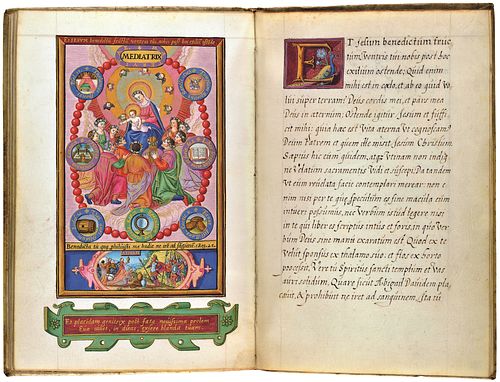 ET IESUM benedictū fructū ventris tui nobis post hoc exiliū ostēde
MEDIATRIX
Benedicta tu quæ prohibuisti me hodie ne irē ad sāguinē. 1. Reg. 25.
Et placidam genitrix post fata novissima prolem
Evæ ostēt, in dicat, exsere blanda tuam.
ET Iesum benedictum fruc
tum ventris tui nobis post hoc
exilium ostende; Quid enim
mihi est in cœlo, et ab eo quid vo
lui super terram? Deus cordis mei, et pars mea
Deus in æternum. Ostende igitur Iesum et suffi
cit mihi: quia hæc est vita æterna ut cognoscam
Deum Patrem et quem ille misit Iesum Christum
Sæpius hic eum quidem, atq; utinam non indig
ne velatum sacramentis vidi et suscepi. Da tandem
ut eum revelata facie contemplari merear: nem
enim nisi per te quæ specula sine macula eum
intueri possumus, nec Verbum istud legere nisi
in te qui liber es scriptus intus et foris, in quo ver
bum Dei sine manu exaratum est. Quod ex te
velut sponsus ex thalamo suo, et flos ex horto
processit. Vere tu Spiritus sancti templum et vas
auri solidum. Quare sicut Abigail Davidem pla
cavit, & prohibuit ne iret ad sanguinem. Ita tu